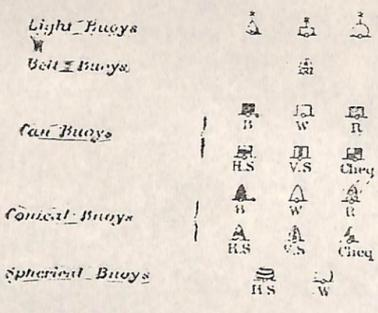 Light Buoys
Bell Buoys
Can Buoys
B W R
H.S V.S Cheq
Conical Buoys
B W R
H.S V.S Cheq
Spherical Buoys
H.S W